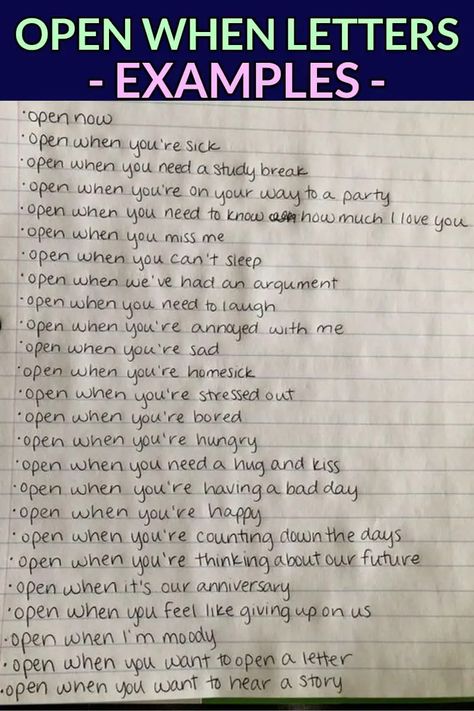 OPEN WHEN LETTERS
- EXAMPLES -
·open now
·open when you're sick
·open when you need a study break
·open when you're on your way to a party
·open when you need to know how much I love you
·open when you miss me
·open when you can't sleep
·open when we've had an argument
·open when you need to laugh
·open when you're annoyed with me
·open when you're sad
·open when you're homesick
·open when you're stressed out
·open when you're bored
·open when you're hungry
·open when you need a hug and kiss
·open when you're having a bad day
·open when you're happy
·open when you're counting down the days
·open when you're thinking about our future
·open when it's our anniversary
·open when you feel like giving up on us
·open when I'm moody
·open when you want to open a letter
·open when you want to hear a story